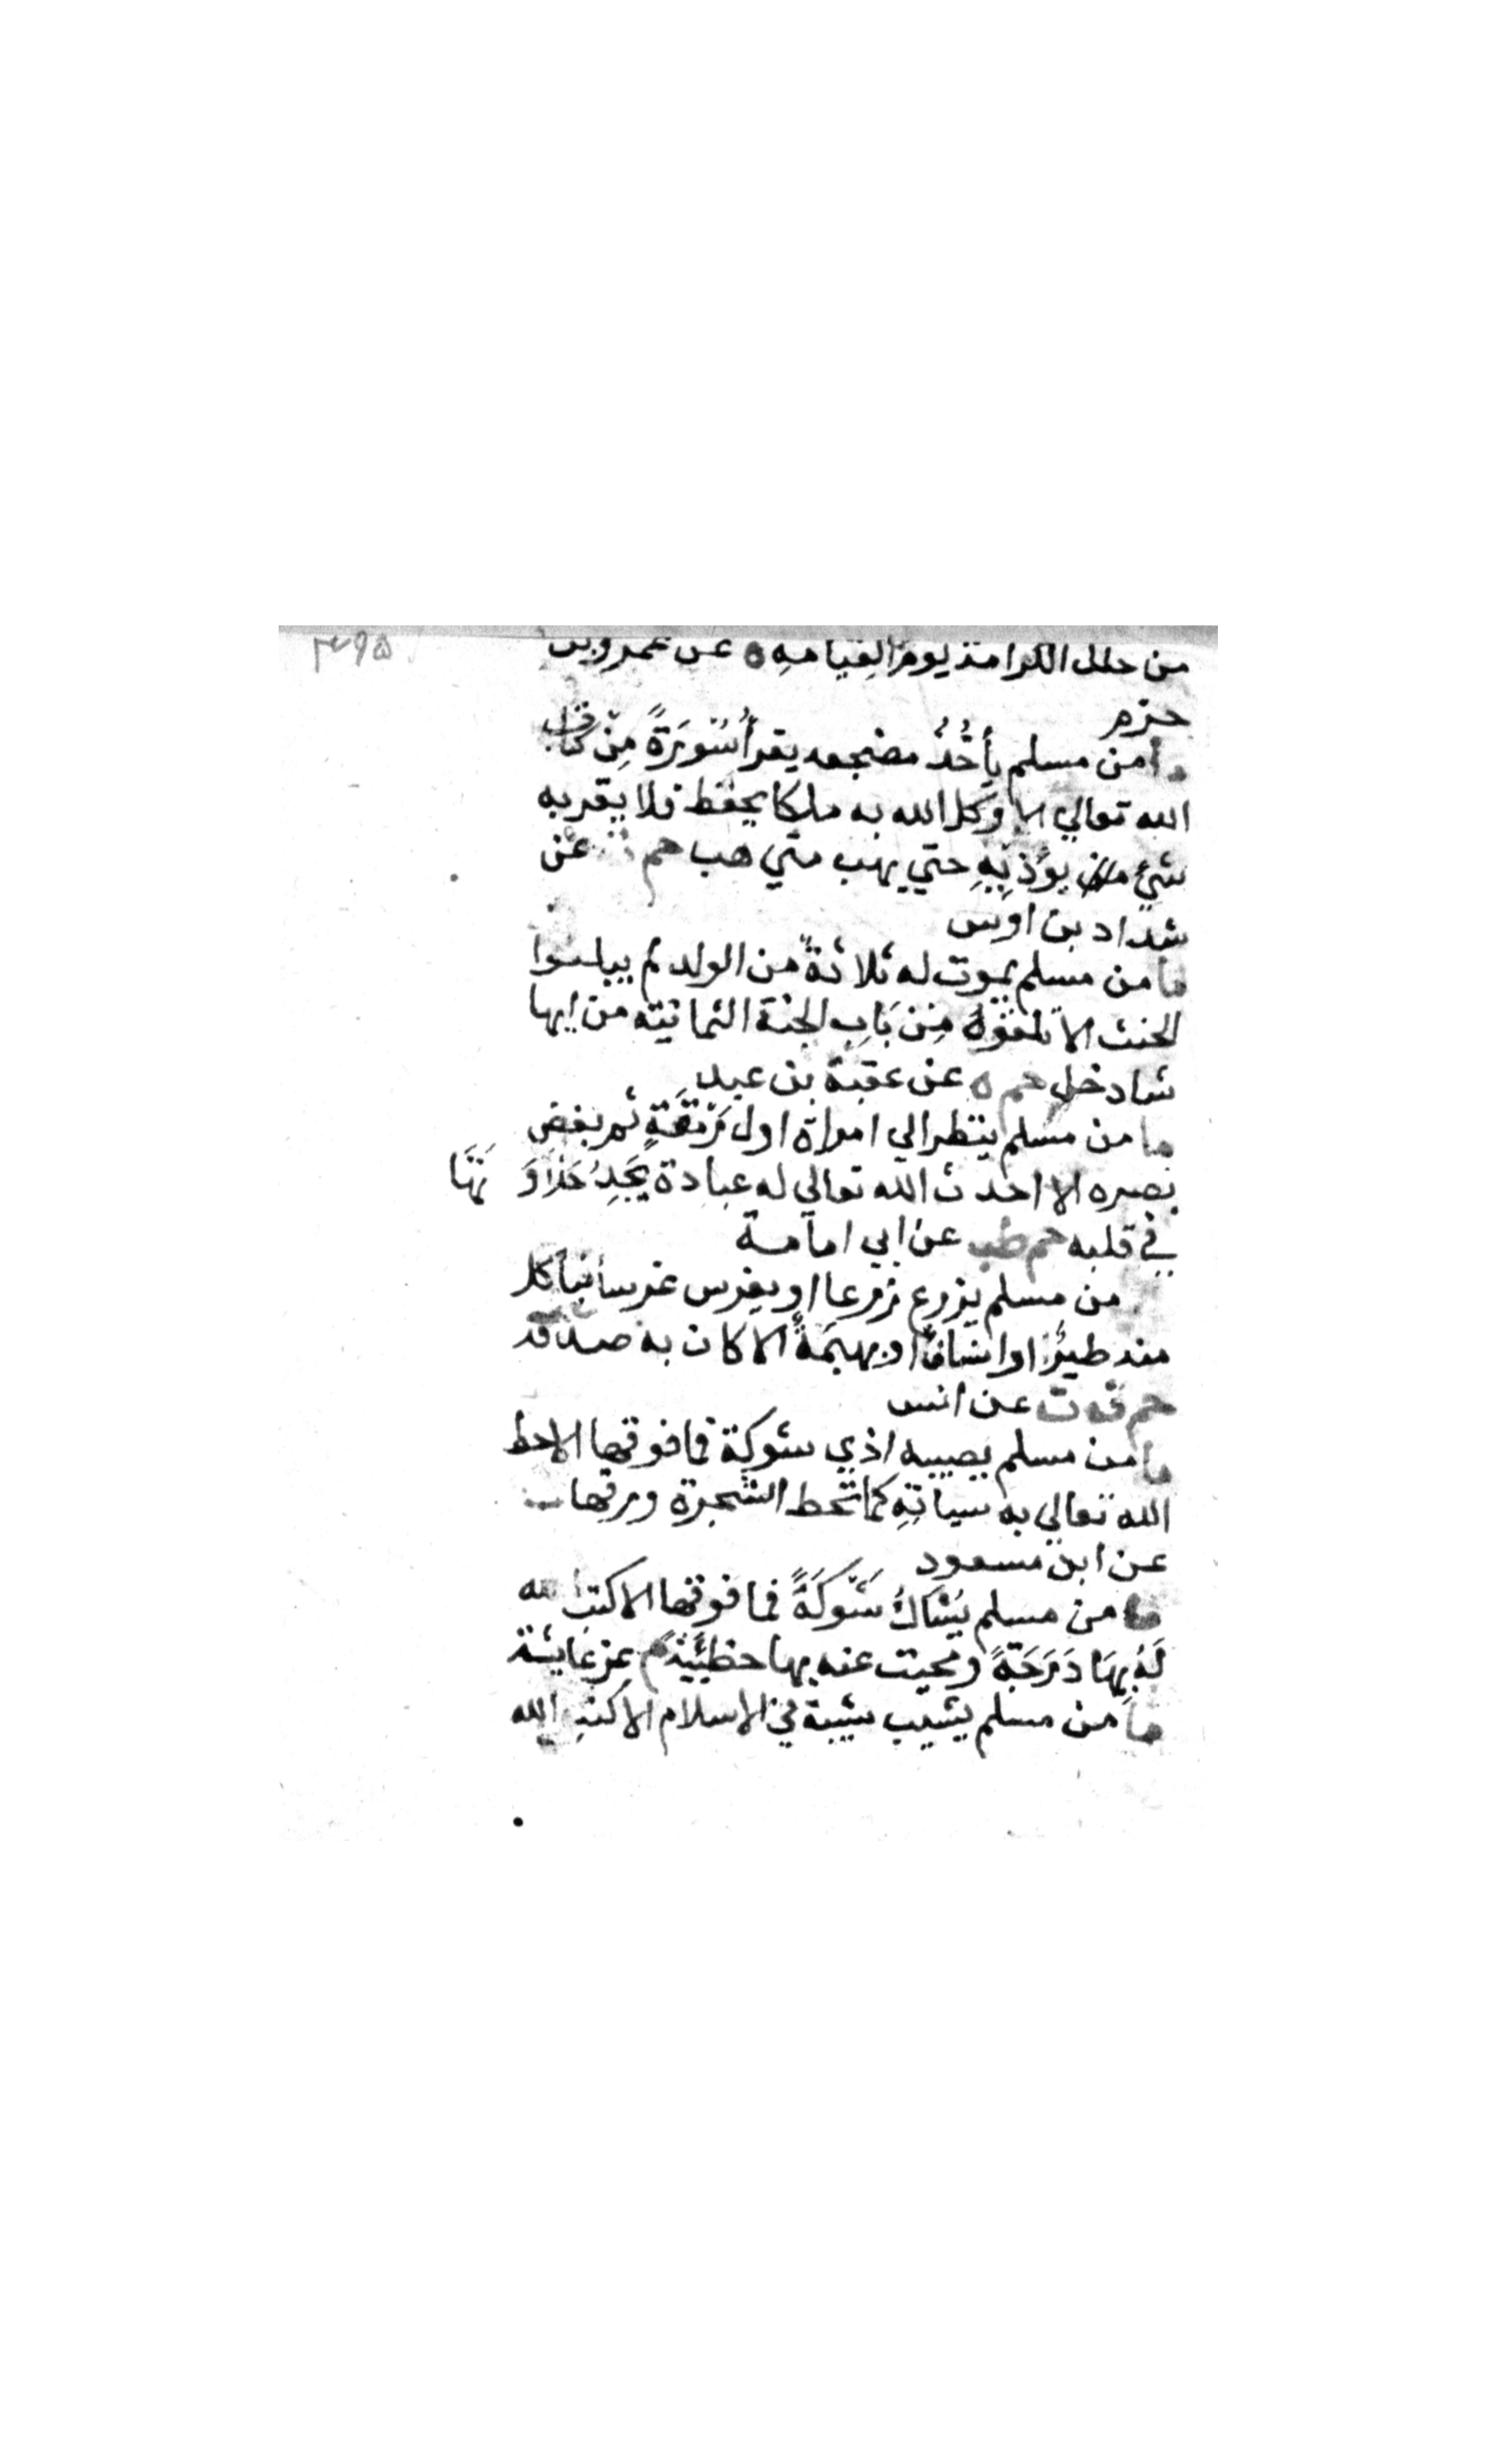 ٣٩٥
من حلل الكرامة يوم القيامه ه عن عمرو بن
حزم
ما من مسلم يأخُذُ مضجعه يقرأ سُوَرَةً مِنْ كتاب
الله تعالي الا وكل الله به ملكا يحفظه فلا يقربه
شيٌ يؤذيهِ حتي يهب متي هب حم ت عن
شداد بن اوس
ما من مسلم يموت له ثلاثةً من الولد لم يبلغوا
الحنث الا تلقوهُ مِنْ بَابِ الجنة الثمانيته من ايها
شا دخل حم ه عن عقبة بن عبد
ما من مسلم ينتظر الي امراة اول رَمْقَةٍ ثم يغض
بصره الا احدث الله تعالي له عبادة يَجِدُ حَلَاوَتَهَا
في قلبه حم طب عن ابي امامة
من مسلم يزرع زرعا او يغرس غرسا فيأكل
منه طيرٌا او انسانٌا او بهيمَةٌ الا كان به صدقة
حم ق ت عن انس
ما من مسلم يصيبه اذي شوكة فما فوقها الا حط
الله تعالي به سياتِهِ كما تحط الشجرة ورقها
عن ابن مسعود
ما من مسلم يُشَاكُ شَوْكَةً فما فوقها الا كتب الله
لَهُ بِهَا دَرَجَةً ومحيت عنه بها خطيئَة م عن عايشة
ما من مسلم يشيب شيبة في الاسلام الا كتب الله